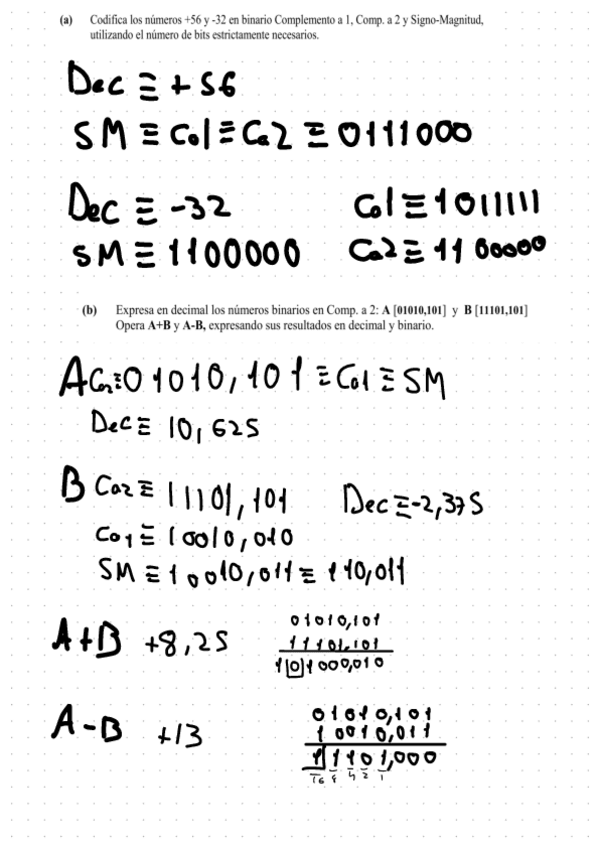 (a) Codifica los números +56 y -32 en binario Complemento a 1, Comp. a 2 y Signo-Magnitud,
utilizando el número de bits estrictamente necesarios.
Dec ≡ +56
SM ≡ Co1 ≡ Ca2 ≡ 0111000
Dec ≡ -32
Co1 ≡ 1011111
SM ≡ 1100000
Ca2 ≡ 1100000
(b) Expresa en decimal los números binarios en Comp. a 2: A [01010,101] y B [11101,101]
Opera A+B y A-B, expresando sus resultados en decimal y binario.
A Co2 ≡ 01010,101 ≡ Co1 ≡ SM
Dec ≡ 10,625
B Co2 ≡ 11101,101
Dec ≡ -2,375
Co1 ≡ 10010,010
SM ≡ 10010,011 ≡ 110,011
A+B +8,25
01010,101
11101,101
101000,010
A-B +13
01010,101
10010,011
11101,000
16 8 4 2 1